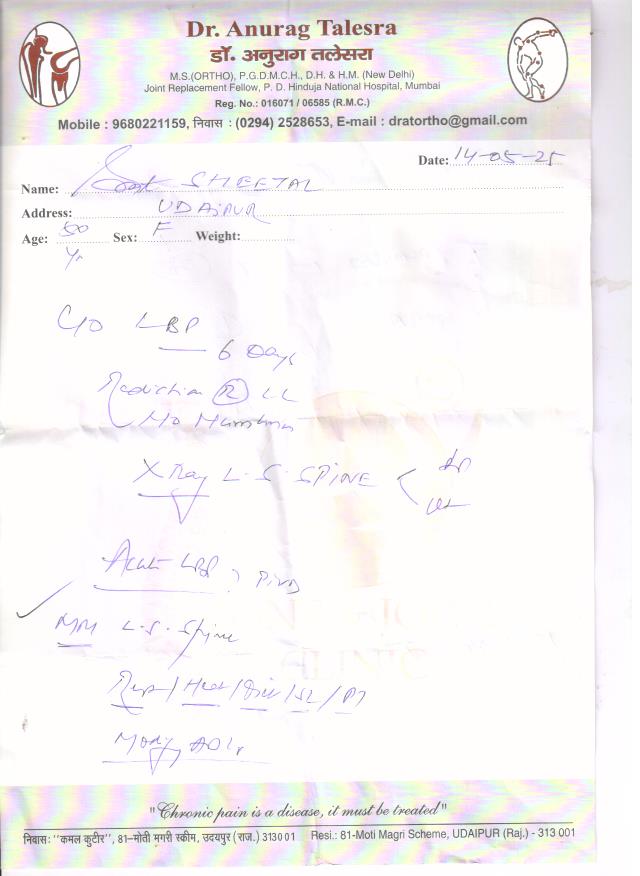 Dr. Anurag Talesra
डॉ. अनुराग तलेसरा
M.S.(ORTHO), P.G.D.M.C.H., D.H. & H.M. (New Delhi)
Joint Replacement Fellow, P. D. Hinduja National Hospital, Mumbai
Reg. No.: 016071 / 06585 (R.M.C.)
Mobile : 9680221159, निवास : (0294) 2528653, E-mail : dratortho@gmail.com
Date: 14-05-25
Name: SHEETAL
Address: UDAIPUR
Age: 50 Yr Sex: F Weight:
C/O LBP
6 Days
Radiation (R) LL
X Ray L.S. SPINE AP
Lat
Acute LBP ? PIVD
L.S. Spine
Rest / Heat / / SL / PT
Modify ADLs
"Chronic pain is a disease, it must be treated"
निवास: "कमल कुटीर", 81-मोती मगरी स्कीम, उदयपुर (राज.) 313001 Resi.: 81-Moti Magri Scheme, UDAIPUR (Raj.) - 313 001